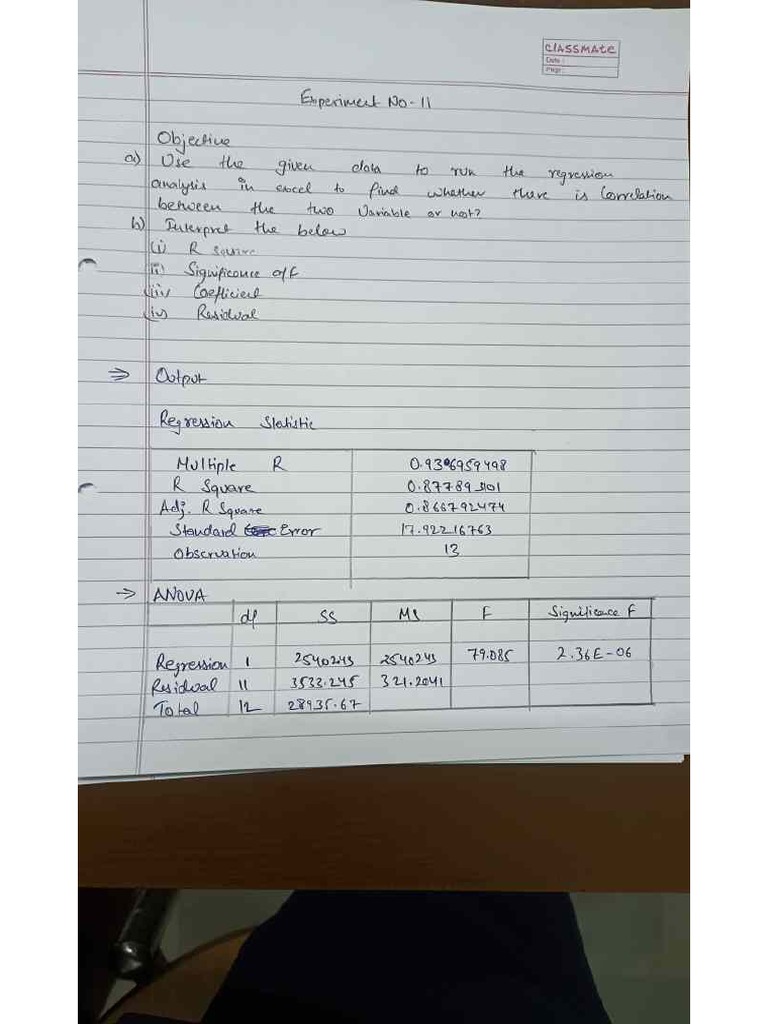 CLASSMATE
Date :
Page :
Experiment No - 11
Objective
a) Use the given data to run the regression
analysis in excel to find whether there is Correlation
between the two Variable or not?
b) Interpret the below
(i) R Square
ii) Significance of F
(iii) Coefficient
(iv) Residual
⇒ Output
Regression Statistic
Multiple R 0.9306959498
R Square
Adj. R Square 0.866792474
Standard Error 17.92216763
Observation 13
→ ANOVA
df SS MS F Significance F
Regression 1 2540243 2540243 79.085 2.36E-06
Residual 11 3533.245 321.2041
Total 12 28935.67